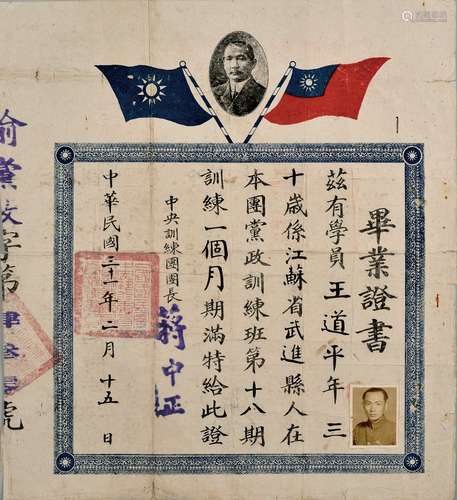 畢業證書
茲有學員王道平年三
十歲係江蘇省武進縣人在
本團黨政訓練班第十八期
訓練一個月期滿特給此證
中央訓練團團長
蔣中正
中華民國三十一年二月十五日
渝黨政字第
肆叁零號